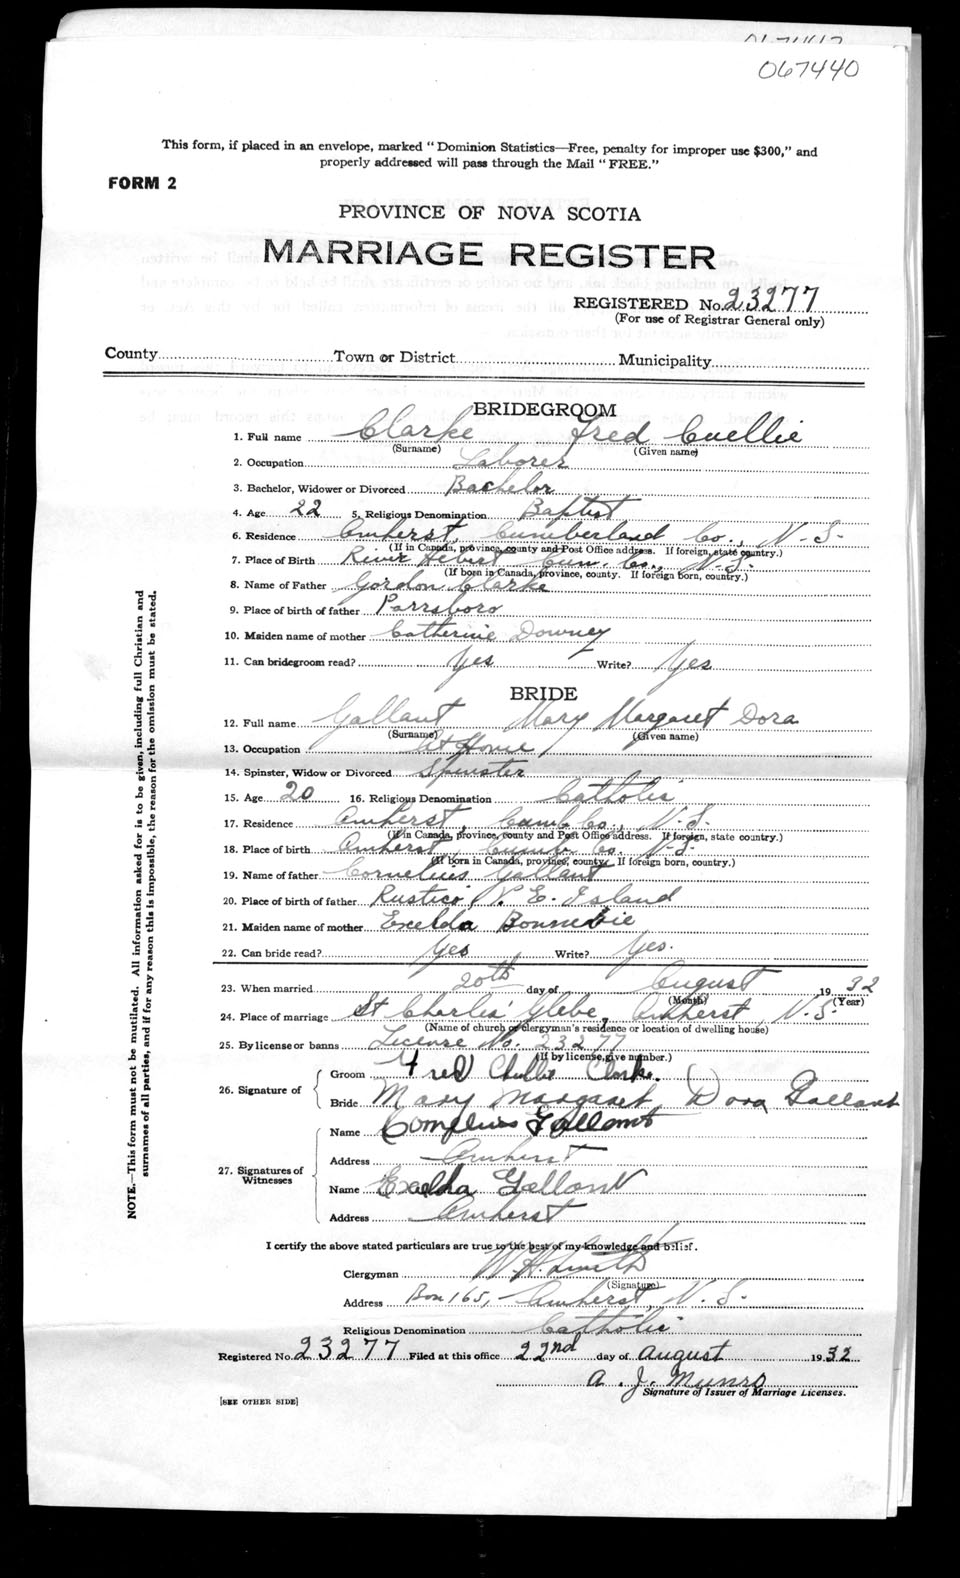 067440
This form, if placed in an envelope, marked "Dominion Statistics—Free, penalty for improper use $300," and
properly addressed will pass through the Mail "FREE."
FORM 2
PROVINCE OF NOVA SCOTIA
MARRIAGE REGISTER
REGISTERED No. 23277
(For use of Registrar General only)
County Town or District Municipality
BRIDEGROOM
1. Full name Clarke Fred Cuellie
(Surname) (Given name)
2. Occupation Laborer
3. Bachelor, Widower or Divorced Bachelor
4. Age 22 5. Religious Denomination Baptist
6. Residence Amherst, Cumberland Co., N.S.
(If in Canada, province, county and Post Office address. If foreign, state country.)
7. Place of Birth River Hebert Cum. Co., N.S.
(If born in Canada, province, county. If foreign born, country.)
8. Name of Father Gordon Clarke
9. Place of birth of father Parrsboro
10. Maiden name of mother Catherine Downey
11. Can bridegroom read? Yes Write? Yes
BRIDE
12. Full name Gallant Mary Margaret Dora
(Surname) (Given name)
13. Occupation At Home
14. Spinster, Widow or Divorced Spinster
15. Age 20 16. Religious Denomination Catholic
17. Residence Amherst, Cumb. Co., N.S.
(If in Canada, province, county and Post Office address. If foreign, state country.)
18. Place of birth Amherst, Cumb. Co. N.S.
(If born in Canada, province, county. If foreign born, country.)
19. Name of father Cornelius Gallant
20. Place of birth of father Rustico, P.E. Island
21. Maiden name of mother Exelda
22. Can bride read? Yes Write? Yes.
23. When married 20th day of August 1932
(Month) (Year)
24. Place of marriage St Charles' Glebe, Amherst, N.S.
(Name of church or clergyman's residence or location of dwelling house)
25. By license or banns License No. 23277
(If by license, give number.)
26. Signature of Groom Fred Clarke.
Bride Mary Margaret Dora Gallant
27. Signatures of Witnesses
Name Gallant
Address Amherst
Name Exelda Gallant
Address Amherst
I certify the above stated particulars are true to the best of my knowledge and belief.
Clergyman W. H. Smith
(Signature)
Address Box 165, Amherst, N.S.
Religious Denomination Catholic
Registered No. 23277 Filed at this office 22nd day of August 1932
A. J. Munro
Signature of Issuer of Marriage Licenses.
[SEE OTHER SIDE]
NOTE.—This form must not be mutilated. All information asked for is to be given, including full Christian and
surnames of all parties, and if for any reason this is impossible, the reason for the omission must be stated.